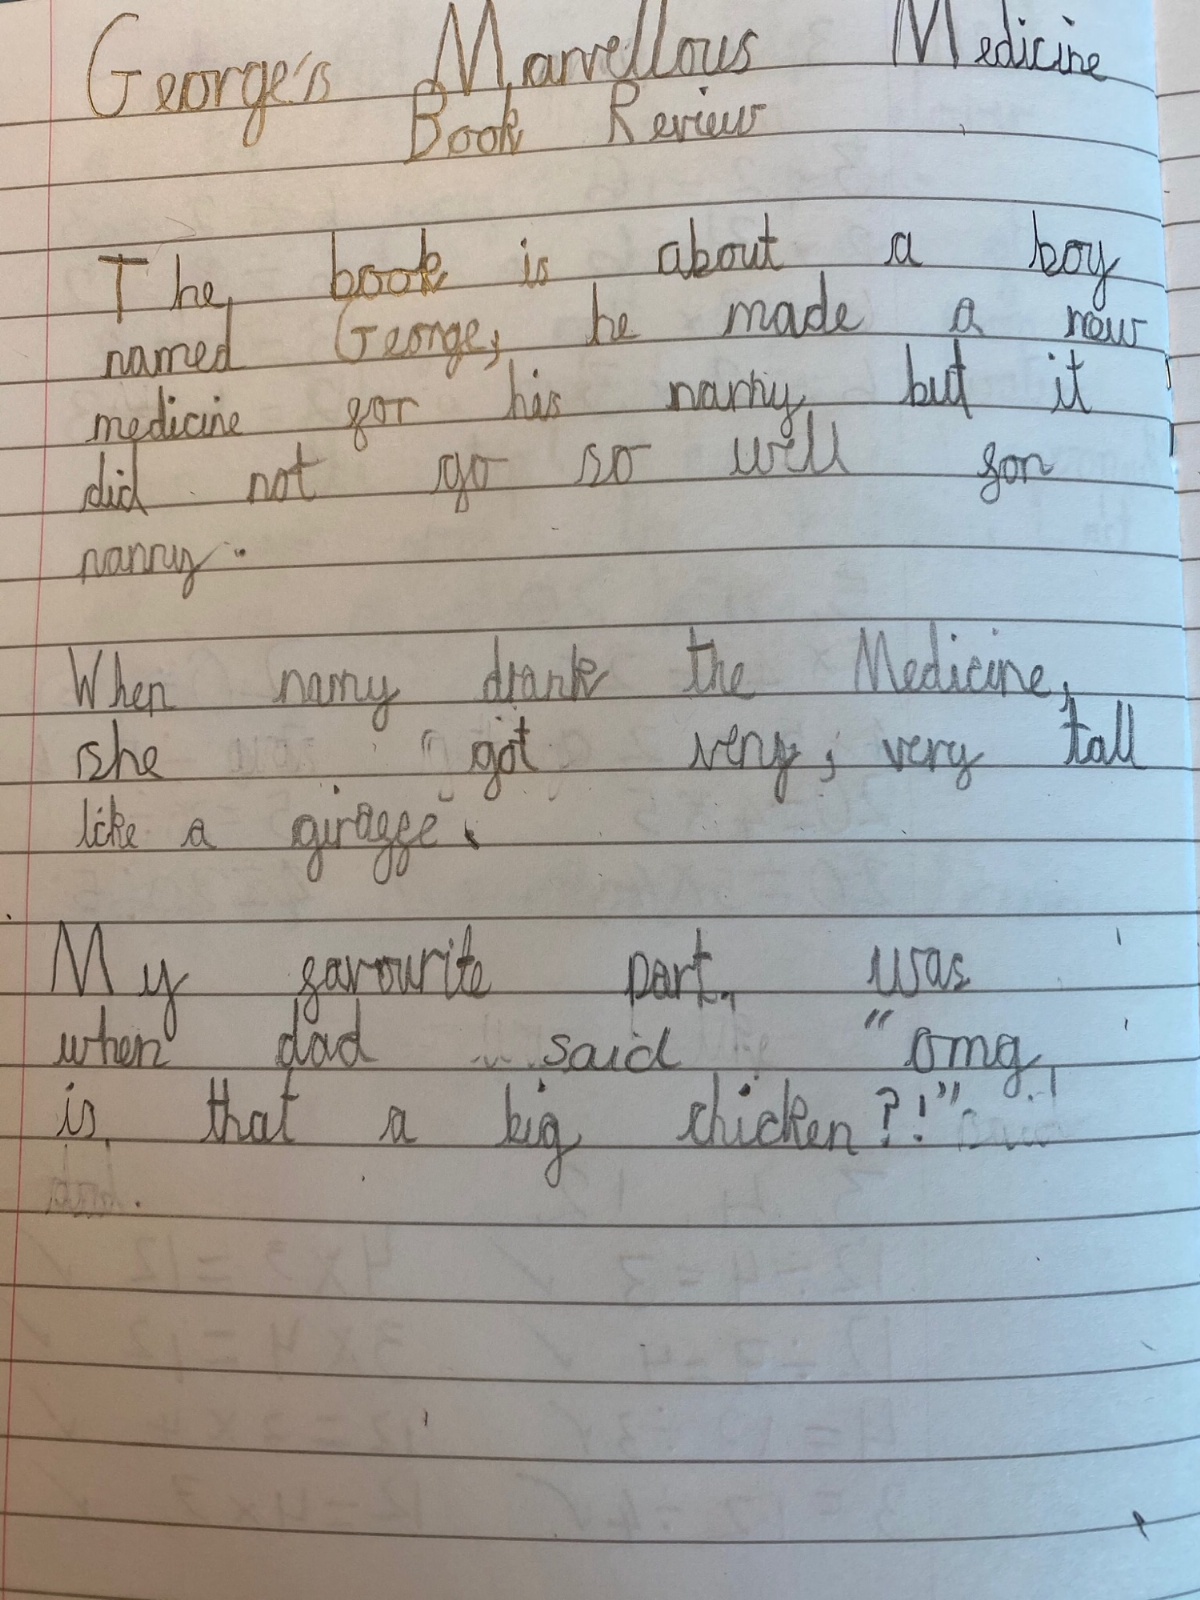 George's Marvellous Medicine
Book Review
The book is about a boy
named George, he made a new
medicine for his nanny but it
did not go so well for
nanny.
When nanny drank the Medicine,
she got very, very tall
like a giraffe.
My favourite part was
when dad said "omg
is that a big chicken?!"